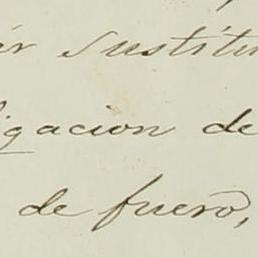 ir Sustitu
igacion de
de fuero,